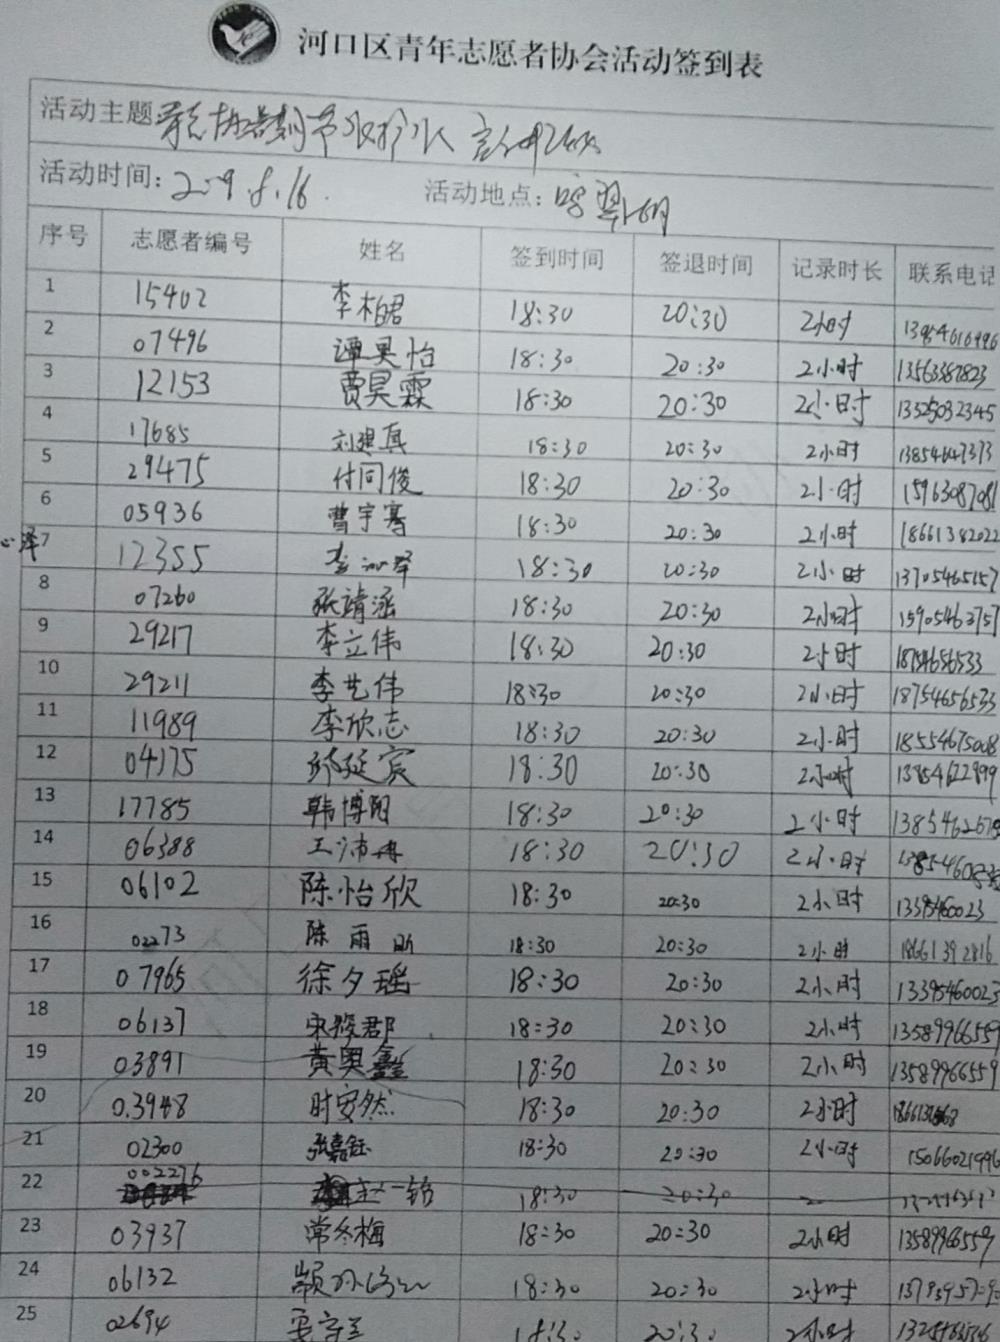 河口区青年志愿者协会活动签到表
活动主题
活动时间: 2019.8.16. 活动地点: 鸣翠湖
序号 志愿者编号 姓名 签到时间 签退时间 记录时长 联系电话
1 15402 李柏君 18:30 20:30 2小时
2 07496 谭昊怡 18:30 20:30 2小时 13563387823
3 12153 贾昊霖 18:30 20:30 2小时 13325032345
4 17685 刘建真 18:30 20:30 2小时 13854647373
5 29475 付同俊 18:30 20:30 2小时 15963087081
6 05936 曹宇骞 18:30 20:30 2小时 18661382022
心泽
7 12355 李沁泽 18:30 20:30 2小时 13705465157
8 07260 张靖涵 18:30 20:30 2小时 15905463757
9 29217 李立伟 18:30 20:30 2小时 18754656533
10 29211 李艺伟 18:30 20:30 2小时 18754656533
11 11989 李欣志 18:30 20:30 2小时 18554675008
12 04175 延宾 18:30 20:30 2小时 13854622899
13 17785 韩博阳 18:30 20:30 2小时
14 06388 王沛冉 18:30 20:30 2小时
15 06102 陈怡欣 18:30 20:30 2小时
16 02273 陈雨昕 18:30 20:30 2小时 18661392816
17 07965 徐夕瑶 18:30 20:30 2小时 13395460023
18 06137 宋骏郡 18:30 20:30 2小时 13589966559
19 03891 黄奥鑫 18:30 20:30 2小时 13589966559
20 03948 时安然 18:30 20:30 2小时
21 02300 张嘉钰 18:30 20:30 2小时 15066021996
22 002276 18:30 20:30
23 03937 常冬梅 18:30 20:30 2小时 13589966559
24 06132 18:30 20:30 2小时
25 02694 18:30 20:30 2小时